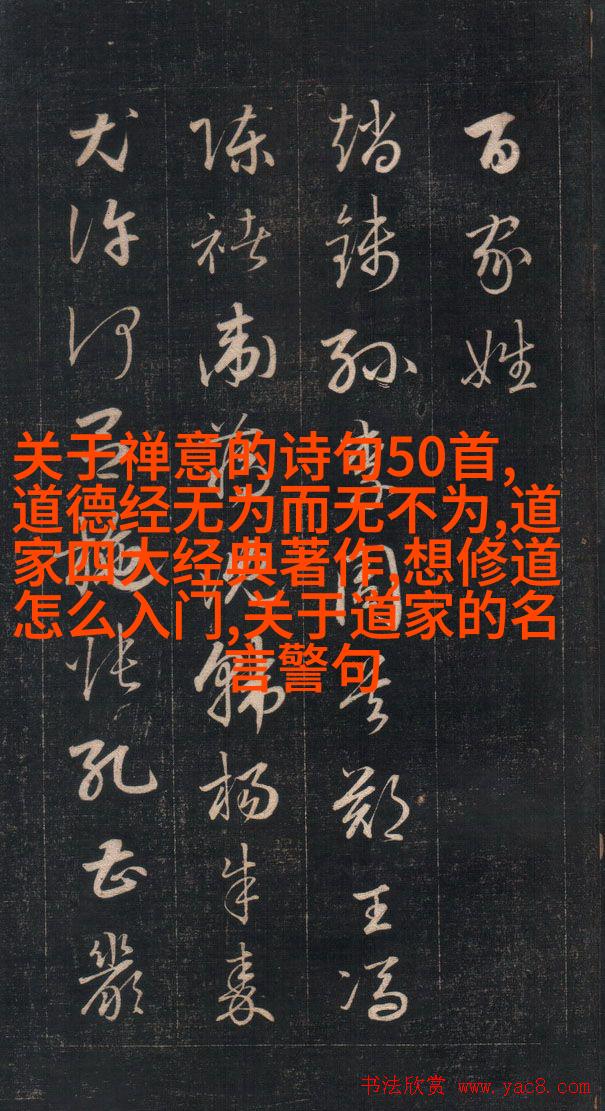 百家姓
趙錢孫李周吳鄭王馮
陳褚衛蔣沈韓楊朱秦
尤許何吕施張孔曹嚴
关于禅意的诗句50首,
道德经无为而无不为,道
家四大经典著作,想修道
怎么入门,关于道家的名
言警句
书法欣赏 www.yac8.com